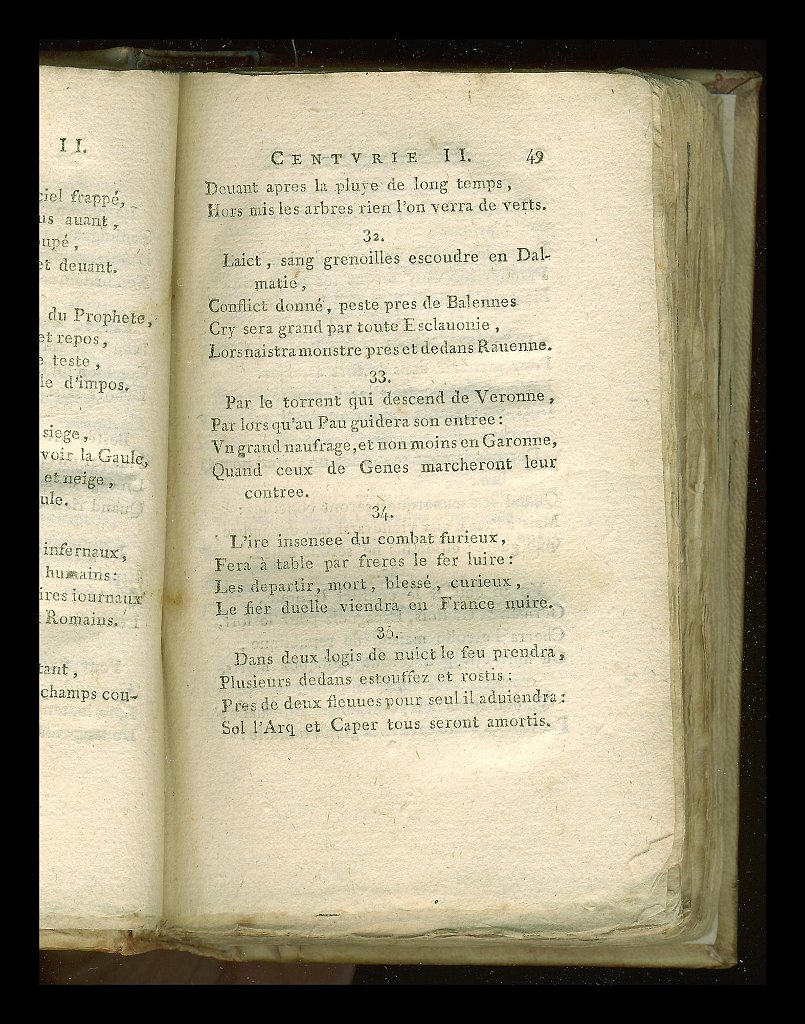 II.
ciel frappé,
us auant,
upé,
et deuant.
du Prophete,
et repos,
teste,
d'impos.
siege,
voir la Gaule,
et neige,
ule.
infernaux,
humains:
ires iournaux
Romains.
tant,
champs cou-
CENTVRIE II. 49
Deuant apres la pluye de long temps,
Hors mis les arbres rien l'on verra de verts.
32.
Laict, sang grenoilles escoudre en Dal-
matie,
Conflict donné, peste pres de Balennes
Cry sera grand par toute Esclauonie,
Lors naistra monstre pres et dedans Rauenne.
33.
Par le torrent qui descend de Veronne,
Par lors qu'au Pau guidera son entree:
Vn grand naufrage, et non moins en Garonne,
Quand ceux de Genes marcheront leur
contree.
34.
L'ire insensee du combat furieux,
Fera à table par freres le fer luire:
Les departir, mort, blessé, curieux,
Le fier duelle viendra en France nuire.
35.
Dans deux logis de nuict le feu prendra,
Plusieurs dedans estouffez et rostis:
Pres de deux fleuues pour seul il aduiendra:
Sol l'Arq et Caper tous seront amortis.